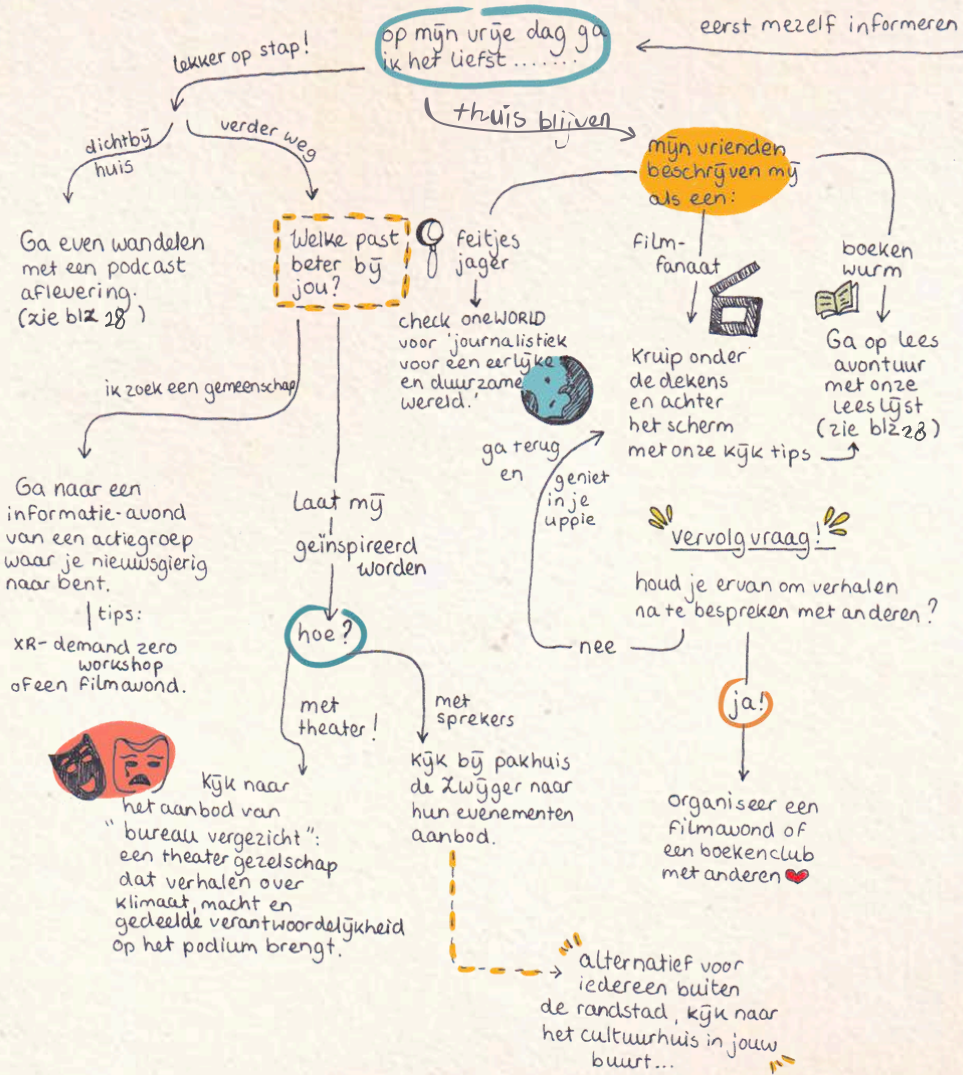 eerst mezelf informeren
op mijn vrije dag ga
ik het liefst.......
lekker op stap!
thuis blijven
dichtbij
huis
verder weg
Ga even wandelen
met een podcast
aflevering.
(zie blz 28)
Welke past
beter bij
jou?
ik zoek een gemeenschap
Ga naar een
informatie-avond
van een actiegroep
waar je nieuwsgierig
naar bent.
tips:
XR-demand zero
workshop
of een filmavond.
Laat mij
geïnspireerd
worden
hoe?
met
theater!
kijk naar
het aanbod van
"bureau vergezicht":
een theater gezelschap
dat verhalen over
klimaat, macht en
gedeelde verantwoordelijkheid
op het podium brengt.
met
sprekers
kijk bij pakhuis
de Zwijger naar
hun evenementen
aanbod.
alternatief voor
iedereen buiten
de randstad, kijk naar
het cultuurhuis in jouw
buurt...
mijn vrienden
beschrijven mij
als een:
feitjes
jager
check oneWORLD
voor 'journalistiek
voor een eerlijke
en duurzame
wereld.'
film-
fanaat
kruip onder
de dekens
en achter
het scherm
met onze kijk tips
boeken
wurm
Ga op lees
avontuur
met onze
lees lijst
(zie blz 28)
vervolg vraag!
houd je ervan om verhalen
na te bespreken met anderen?
nee
ga terug
en
geniet
in je
uppie
ja!
organiseer een
filmavond of
een boekenclub
met anderen